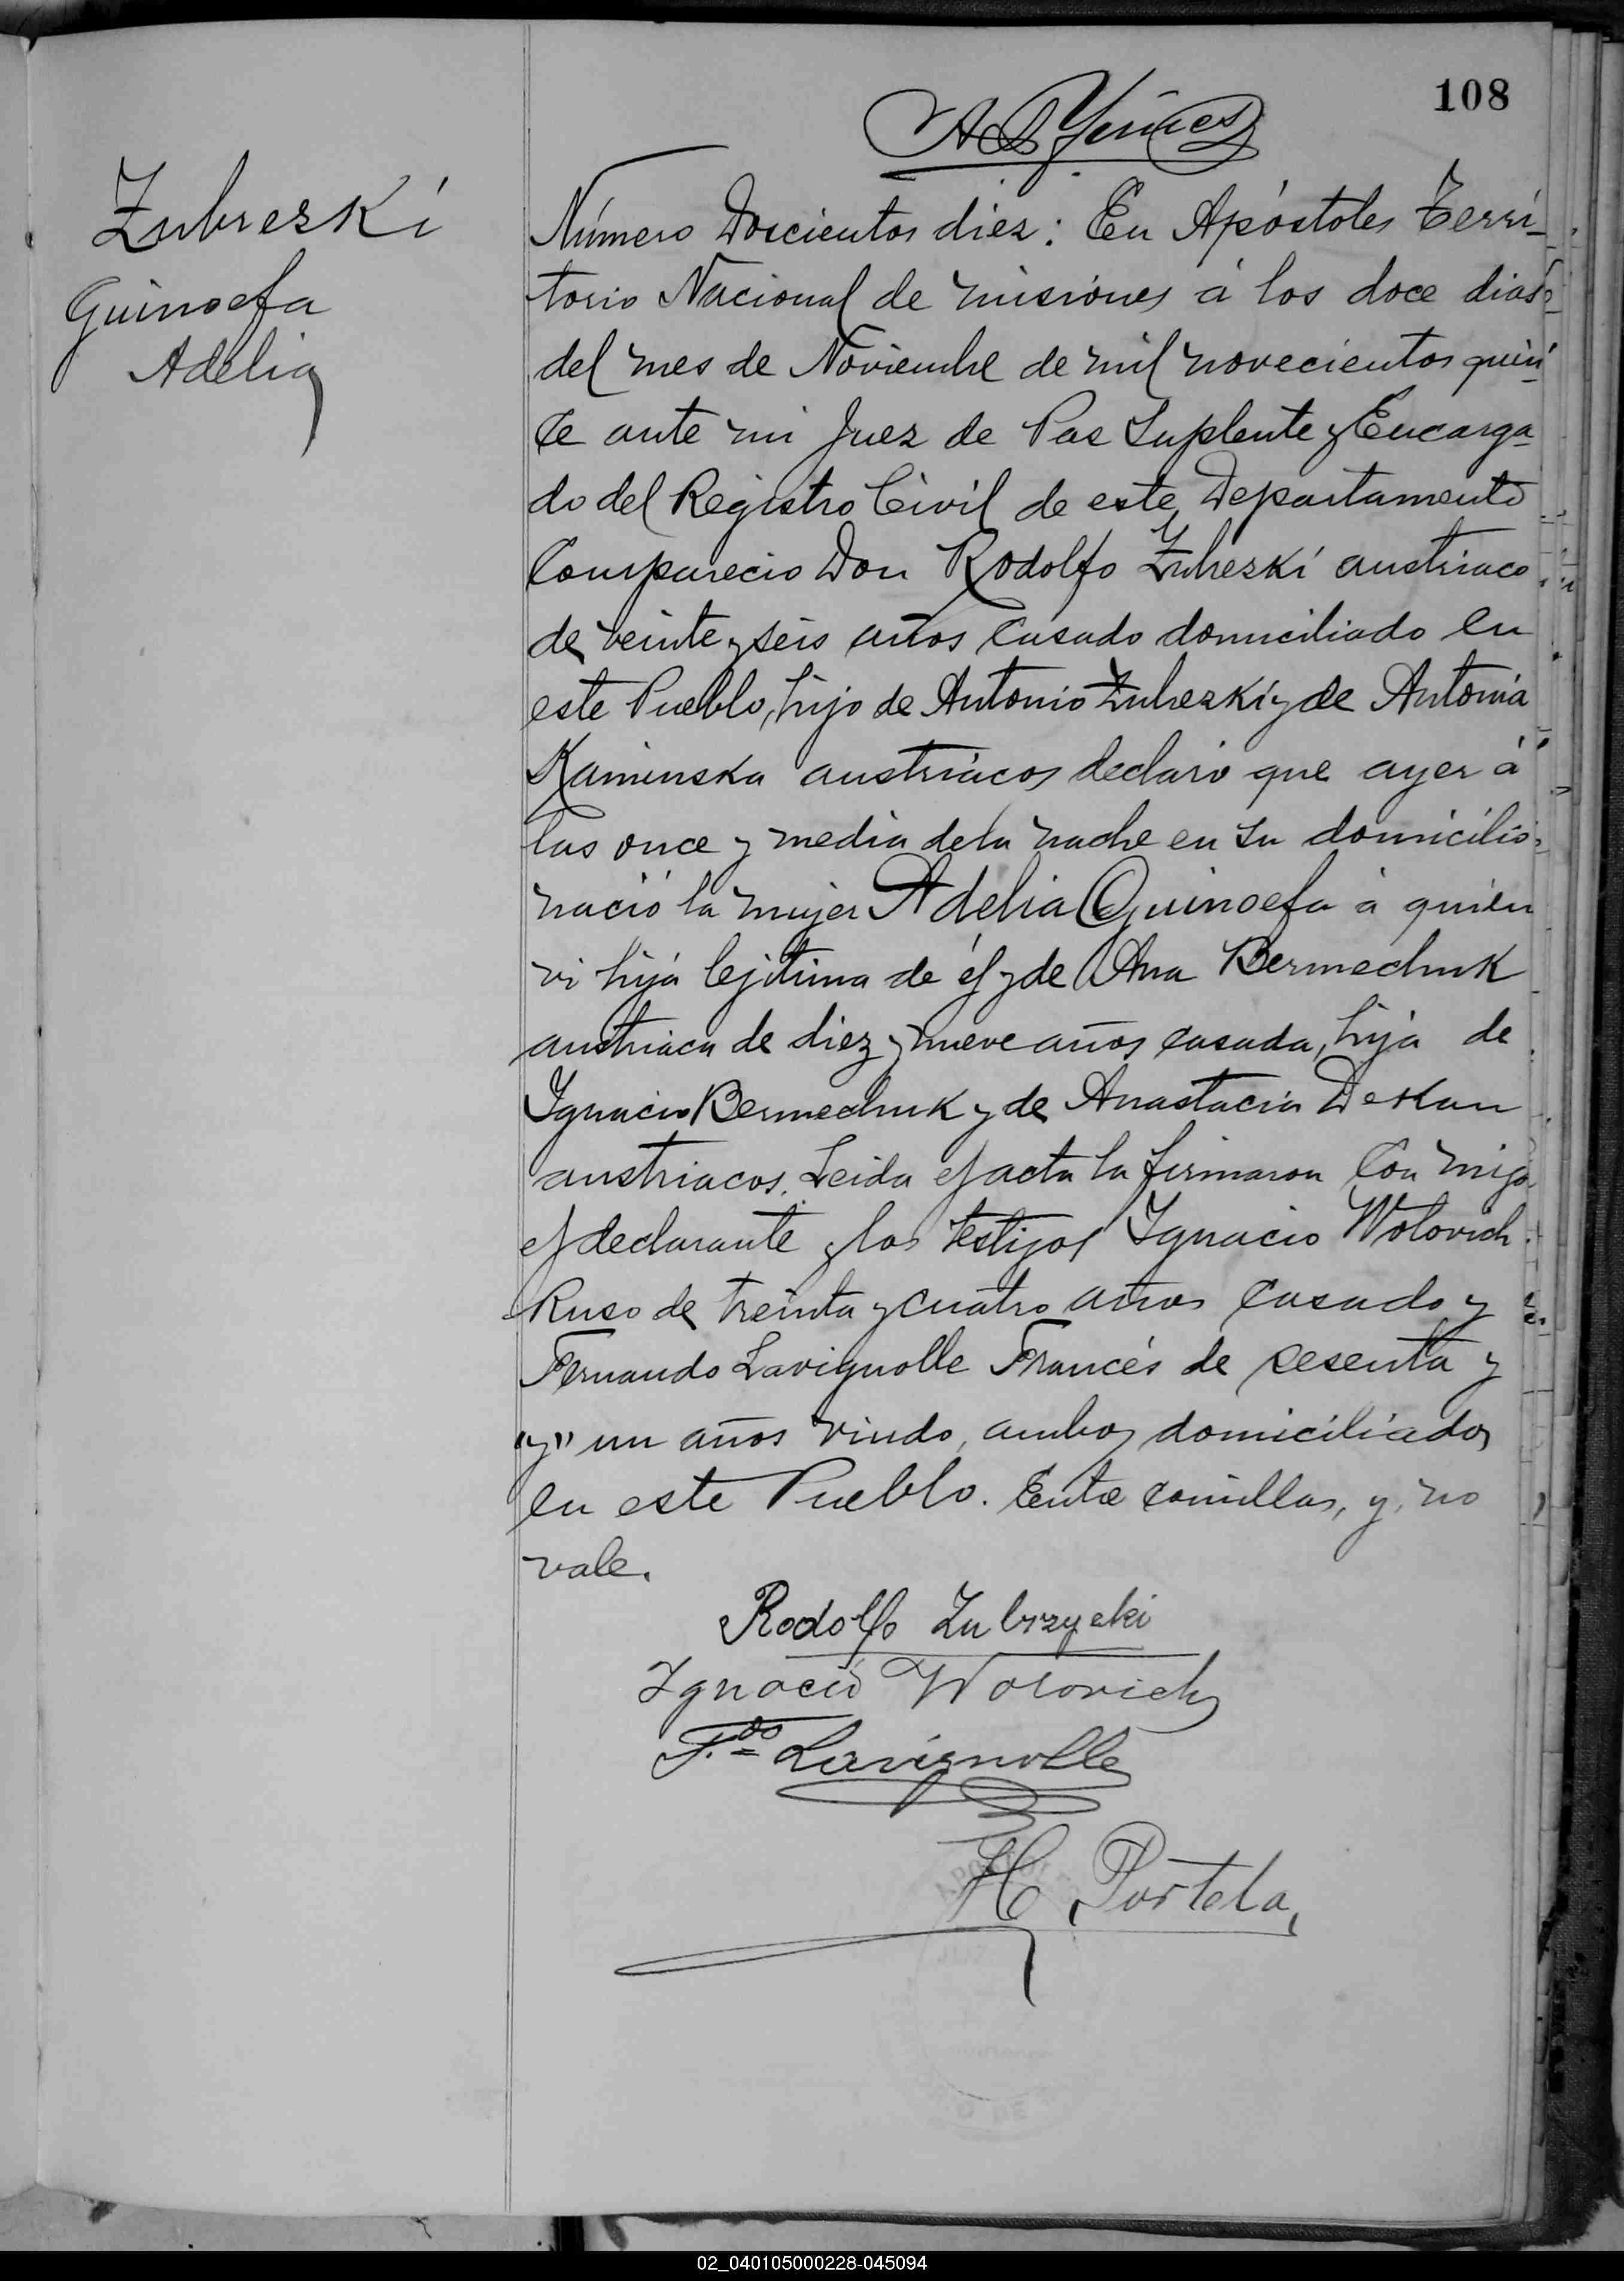 108
Zubreski
Guinoefa
Adelia
Número Doscientos diez: En Apóstoles Terri-
torio Nacional de misiones á los doce dias
del mes de Noviembre de mil novecientos quin-
ce ante mi Juez de Pas Suplente y Encarga-
do del Registro Civil de este Departamento
Comparecio Don Rodolfo Zubreski austriaco
de veinte y seis años casado domiciliado en
este Pueblo, hijo de Antonio Zubreski y de Antonia
Kaminska austriacos declaro que ayer á
las once y media de la noche en su domicilio
nació la mujer Adelia Guinoefa á quien
vi hija lejitima de él y de Ana Bermechuk
austriaca de diez y nueve años casada, hija de
Ignacio Bermechuk y de Anastacia Dekan
austriacos. Leida el acta la firmaron con migo
el declarante y los testigos Ignacio Wolovich
Ruso de treinta y cuatro años casado y
Fernando Lavignolle Francés de sesenta y
"y" un años viudo, ambos domiciliados
en este Pueblo. Entre comillas, y, no
vale.
Rodolfo Zubrzycki
Ignacio Wolovich
F.do Lavignolle
H. Portela,
02_040105000228-045094